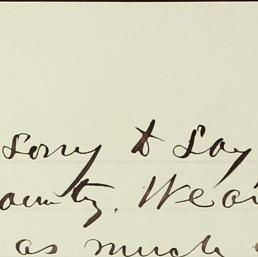 sorry to say
ounty. We a
as much